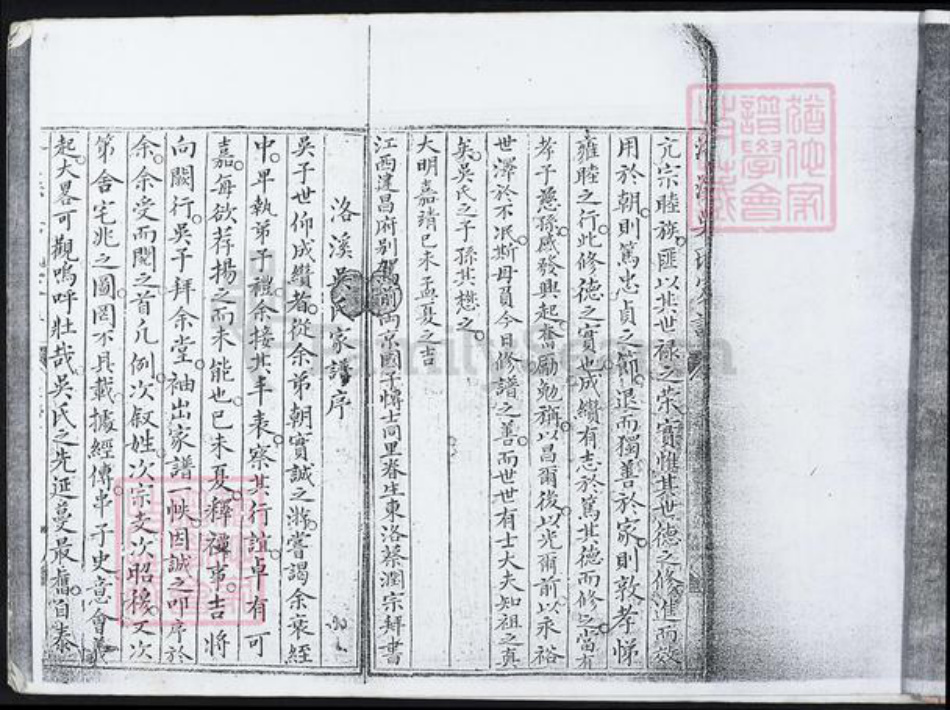 亢宗睦族匪以其世禄之荣實惟其世德之修進而效
用於朝則篤忠貞之節退而獨善於家則敦孝悌
雍睦之行此修德之實也成纘有志於篤其德而修之當有
孝子慈孫感發興起奮勵勉稱以昌爾後以光爾前以永裕
世澤於不泯斯毋負今日修譜之善而世世有士大夫知祖之真
矣吳氏之子孫其懋之
大明嘉靖已未孟夏之吉
江西建昌府別駕前両京國子愽士同里眷生東洛蔡潤宗拜書
洛溪吳氏家譜序
吳子世仰成纘者從余弟朝實誠之游嘗謁余衰絰
中早執弟子禮余接其丰表察其行誼卓有可
嘉每欲荐揚之而未能也已未夏釋禫事吉將
向闕行吳子拜余堂袖出家譜一帙因誠之叩序於
余余受而閱之首凡例次叙姓次宗支次昭穆又次
第舍宅兆之圖罔不具載據經傳串子史意會義
起大畧可觀嗚呼壯哉吳氏之先延蔓最舊自泰
FamilySearch